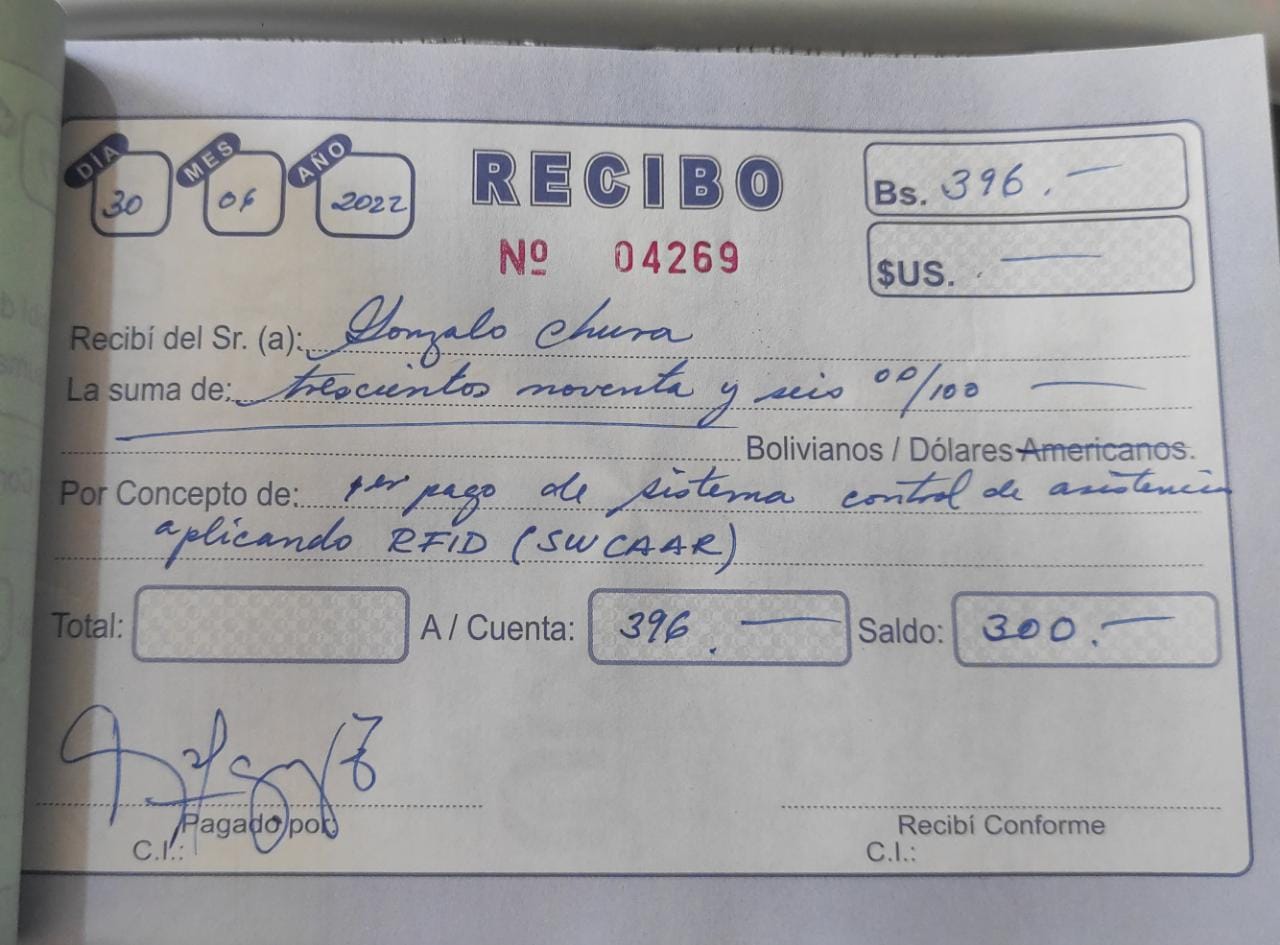 DÍA MES AÑO
30 06 2022
RECIBO
Nº 04269
Bs. 396.—
$US. —
Recibí del Sr. (a): Gonzalo Chura
La suma de: trescientos noventa y seis 00/100 —
Bolivianos / Dólares Americanos.
Por Concepto de: 1er pago de sistema control de asistencia
aplicando RFID (SWCAAR)
Total: A / Cuenta: 396.— Saldo: 300.—
Pagado por:
C.I.:
Recibí Conforme
C.I.: